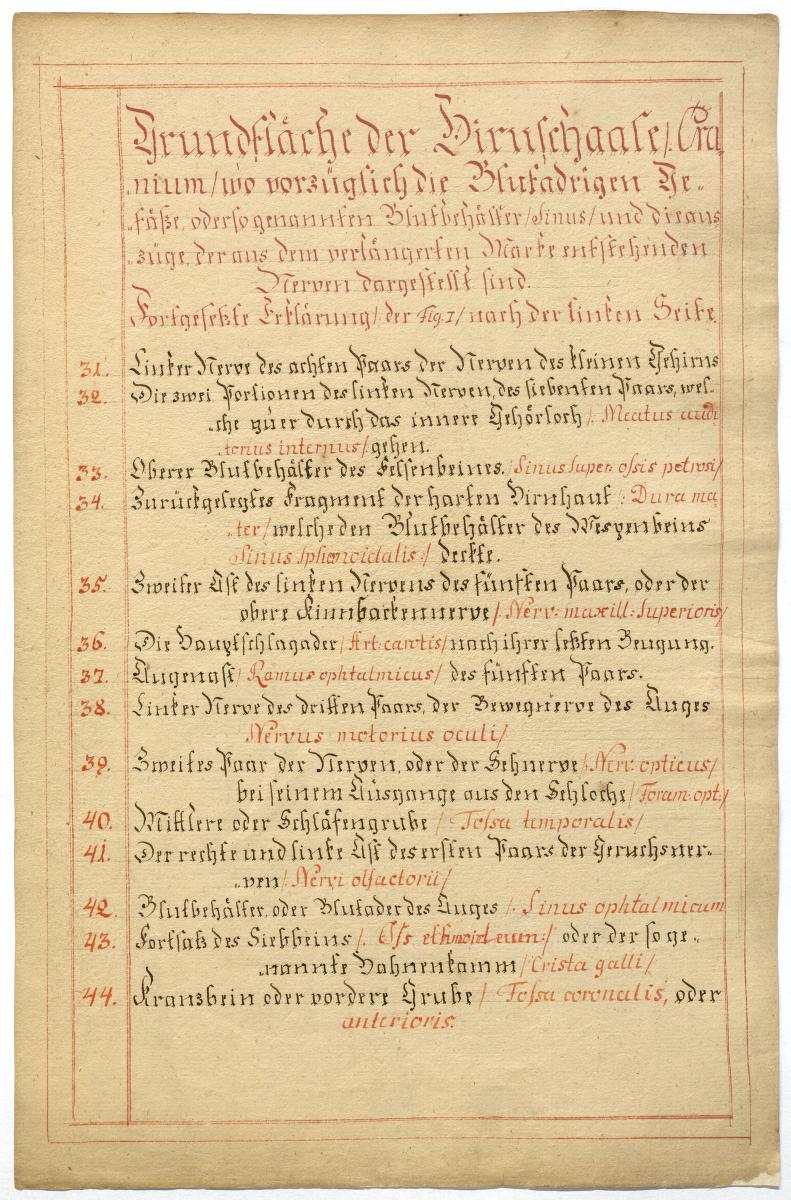 Grundfläche der Hirnschaale /: Cra„
„nium / wo vorzüglich die Blutadrigen Ge„
„fäße, oder so genannten Blutbehälter / Sinus / und die aus„
„züge, der aus dem verlängerten Marke entstehenden
Nerven dargestellt sind.
Fortgesetzte Erklärung /: der Fig. I / nach der linken Seite.
31. Linker Nerve des achten Paars der Nerven des kleinen Gehirns
32. Die zwei Portionen des linken Nerven, des siebenten Paars, wel„
„che quer durch das innere Gehörloch /: Meatus audi
„torius internus / gehen.
33. Oberer Blutbehälter des Felsenbeines. / Sinus super: ossis petrosi /
34. Zurückgelegtes Fragment der harten Hirnhaut /: Dura ma„
„ter / welche den Blutbehälter des Wespenbeins
/ Sinus sphenoidalis :/ deckte.
35. Zweiter Ast des linken Nervens des fünften Paars, oder der
obere Kinnbackennerve /: Nerv: maxill: Superioris /
36. Die Hauptschlagader / Art: carotis / nach ihrer letzten Beugung.
37. Augenast / Ramus ophtalmicus / des fünften Paars.
38. Linker Nerve des dritten Paars, der Bewegnerve des Auges
/ Nervus motorius oculi /
39. Zweites Paar der Nerven, oder der Sehnerve / Nerv: opticus /
bei seinem Ausgange aus den Sehloche / Foram: opt: /
40. Mittlere oder Schläfengrube / Fossa temporalis /
41. Der rechte und linke Ast des ersten Paars der Geruchsner„
„ven / Nervi olfactorii /
42. Blutbehälter, oder Blutader des Auges /: Sinus ophtalmicum
43. Fortsatz des Siebbeins /: Oss ethmoideum :/ oder der so ge„
„nannte Hahnenkamm / Crista galli /
44. Kranzbein oder vordere Grube / Fossa coronalis, oder
anterioris: